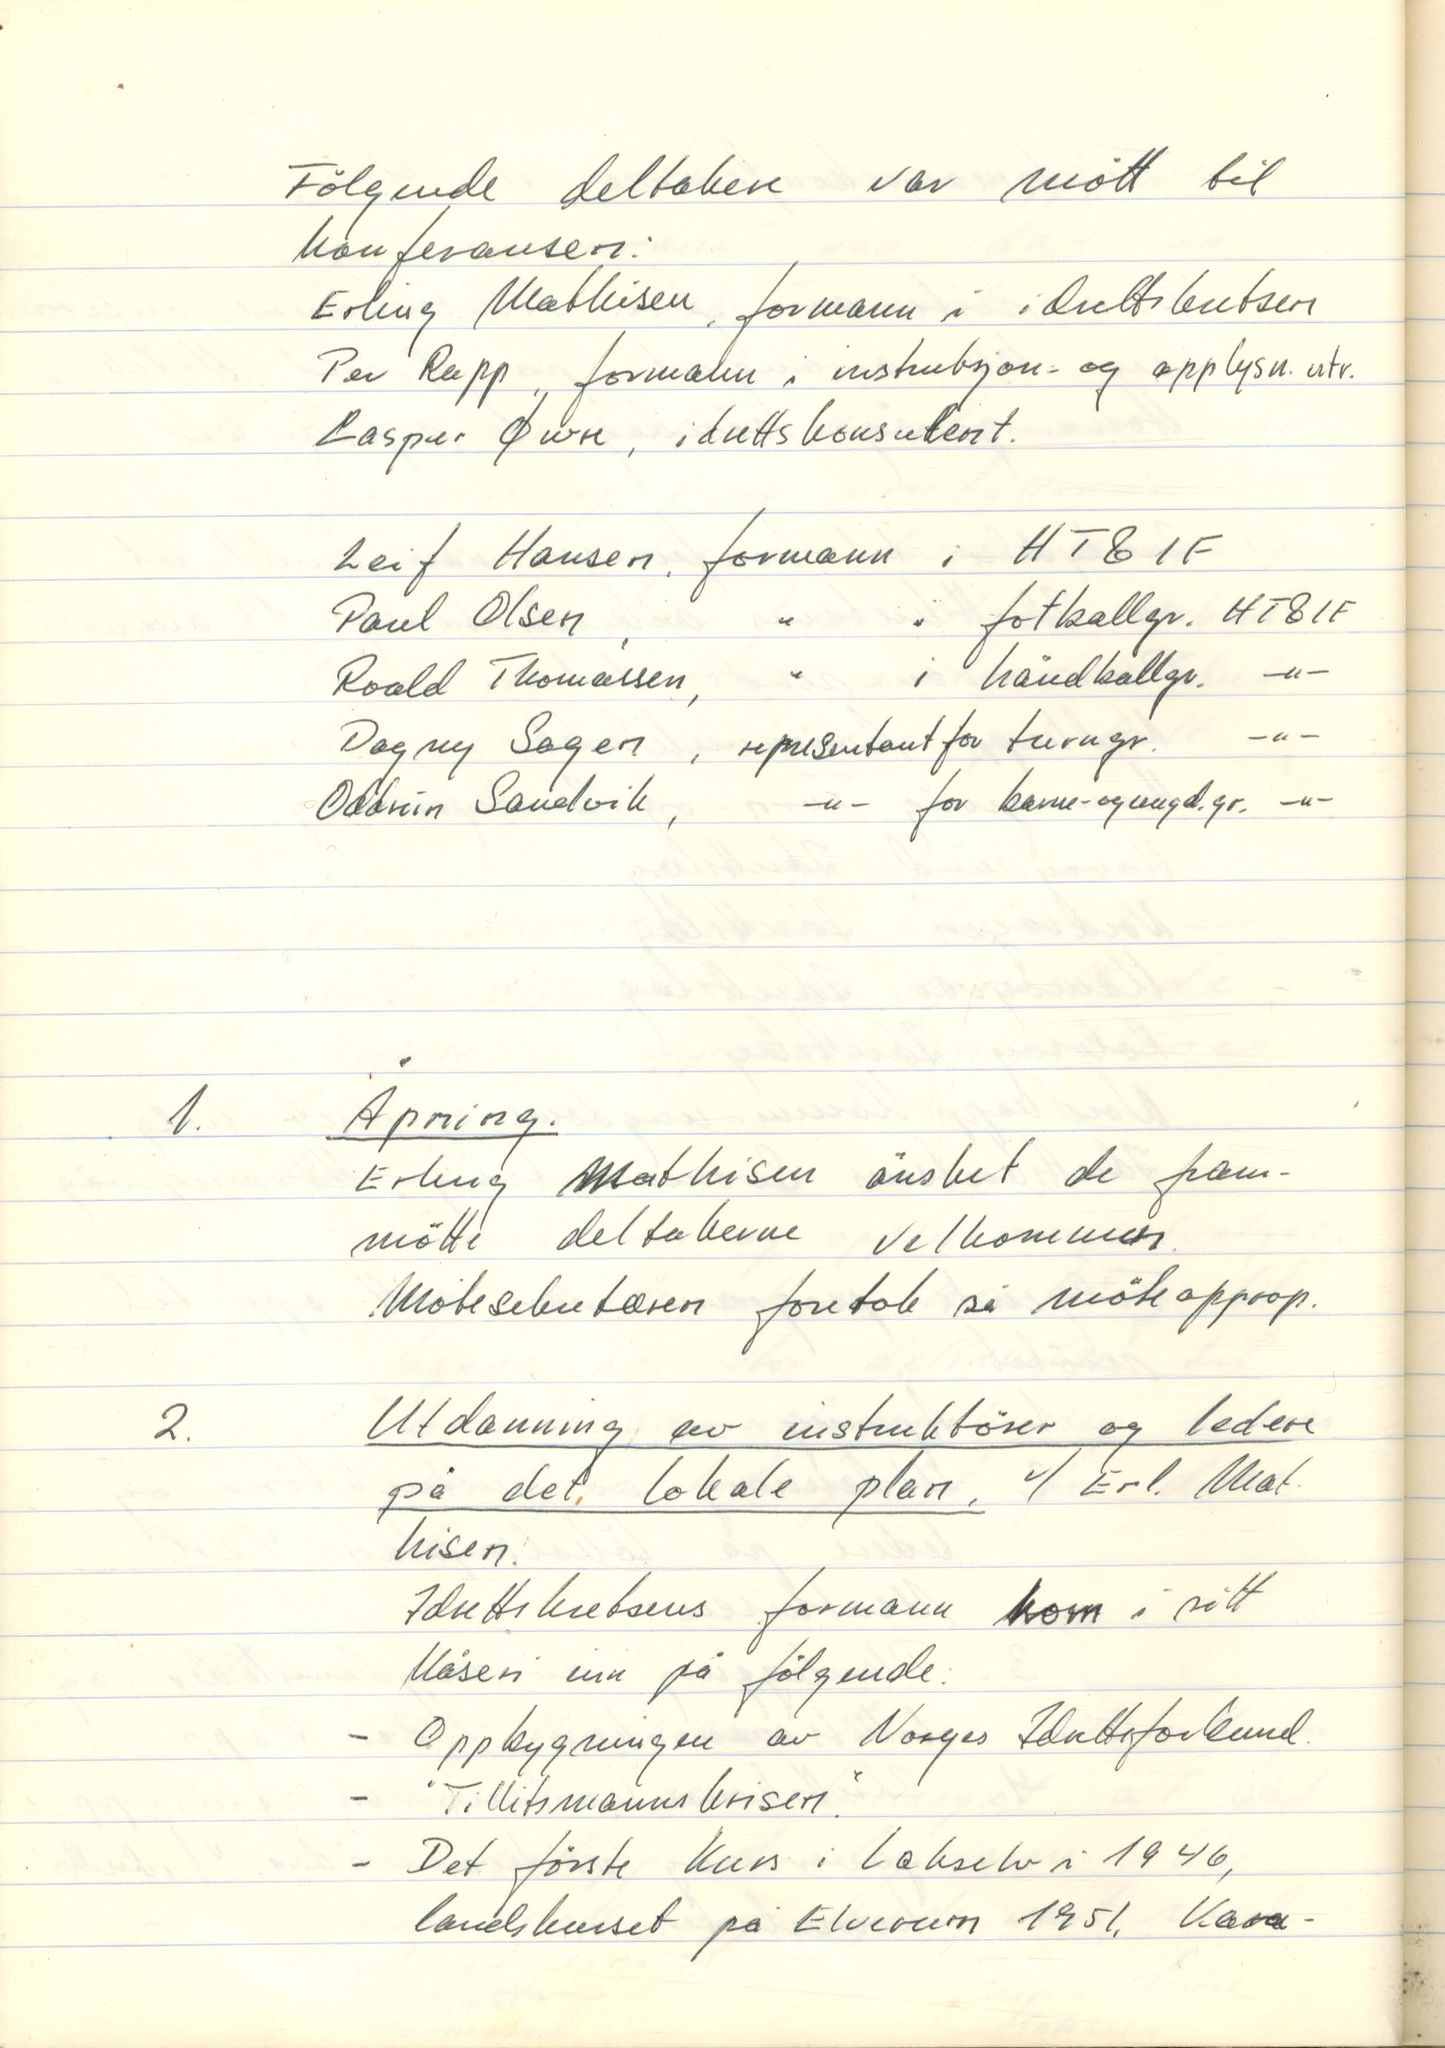 Fölgende deltakere var mött til
konferansen:
Erling Mathisen, formann i idrettskretsen
Per Rapp, formann i instruksjon- og opplysn. utv.
Kasper Øwre, idrettskonsulent.
Leif Hansen, formann i HT&IF
Paul Olsen, " " fotballgr. HT&IF
Roald Thomassen, " i håndballgr. -"-
Dagny Sagen, representant for turngr. -"-
Oddrun Sandvik, -"- for barne-ogungd.gr. -"-
1. Åpning.
Erling Mathisen önsket de fram-
mötte deltakerne velkommen.
Mötesekretæren foretok så möteopprop.
2. Utdanning av instruktörer og ledere
på det lokale plan, v/ Erl. Mat-
hisen.
Idrettskretsens formann kom i sitt
kåseri inn på fölgende:
- Oppbygningen av Norges Idrettsforbund.
- "Tillitsmannskrisen".
- Det förste kurs i Lakselv i 1946,
landskurset på Elverum 1951, Kara-